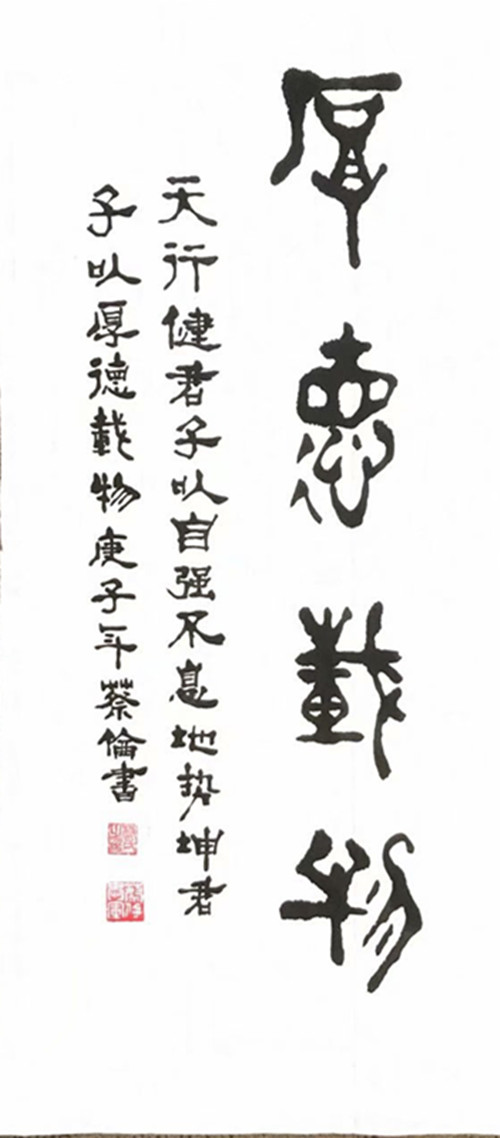 厚悳載物
天行健君子以自强不息地势坤君
子以厚德載物庚子年蔡倫書